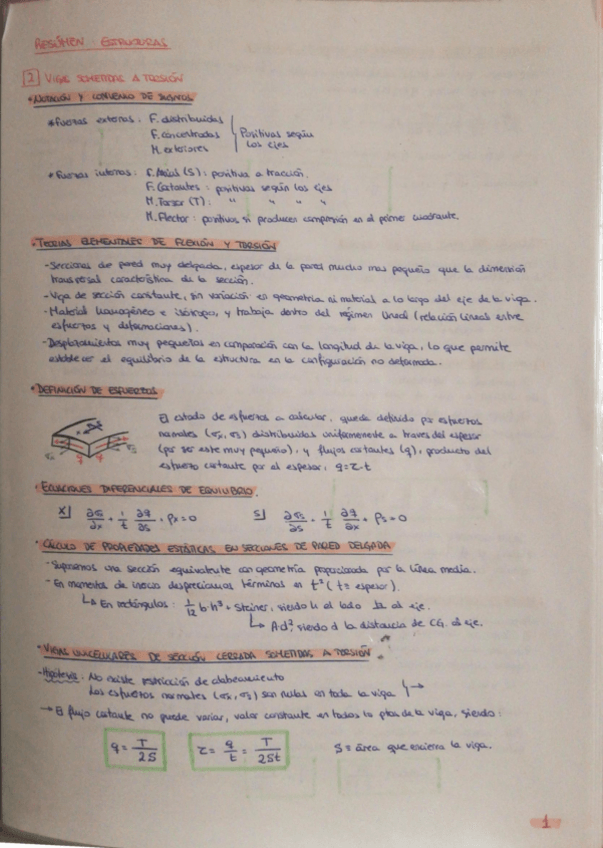 RESÚMEN ESTRUCTURAS
2 VIGAS SOMETIDAS A TORSIÓN
• NOTACIÓN Y CONVENIO DE SIGNOS
* Fuerzas externas: F. distribuidas
F. concentradas
M. exteriores
Positivas según
los ejes
* Fuerzas internas: F. Axial (S): positiva a tracción.
F. Cortantes: positivas según los ejes
M. Torsor (T): " " " "
M. Flector: positivos si producen compresión en el primer cuadrante.
• TEORÍAS ELEMENTALES DE FLEXIÓN Y TORSIÓN
- Secciones de pared muy delgada, espesor de la pared mucho mas pequeño que la dimensión
transversal característica de la sección.
- Viga de sección constante, sin variación en geometría ni material a lo largo del eje de la viga.
- Material homogéneo e isótropo, y trabaja dentro del régimen lineal (relación lineal entre
esfuerzos y deformaciones).
- Desplazamientos muy pequeños en comparación con la longitud de la viga, lo que permite
establecer el equilibrio de la estructura en la configuración no deformada.
• DEFINICIÓN DE ESFUERZOS
El estado de esfuerzos a calcular, queda definido por esfuerzos
normales (σx, σs) distribuidos uniformemente a traves del espesor
(por ser este muy pequeño), y flujos cortantes (q), producto del
esfuerzo cortante por el espesor, q=τ·t
• ECUACIONES DIFERENCIALES DE EQUILIBRIO.
x] ∂σx/∂x + 1/t ∂q/∂s + Px = 0 s] ∂σs/∂s + 1/t ∂q/∂x + Ps = 0
• CÁLCULO DE PROPIEDADES ESTÁTICAS EN SECCIONES DE PARED DELGADA
- Suponemos una sección equivalente con geometría proporcionada por la línea media.
- En momentos de inercia despreciamos términos en t² (t = espesor).
↳ En rectángulos: 1/12 b·h³ + Steiner, siendo h el lado ⊥ al eje.
↳ A·d², siendo d la distancia de CG. al eje.
• VIGAS UNICELULARES DE SECCIÓN CERRADA SOMETIDAS A TORSIÓN
- Hipótesis: No existe restricción de alabeamiento
Los esfuerzos normales (σx, σs) son nulos en toda la viga } →
→ El flujo cortante no puede variar, valor constante en todos lo ptos de la viga, siendo:
q = T/2S τ = q/t = T/2St S = área que encierra la viga.
1